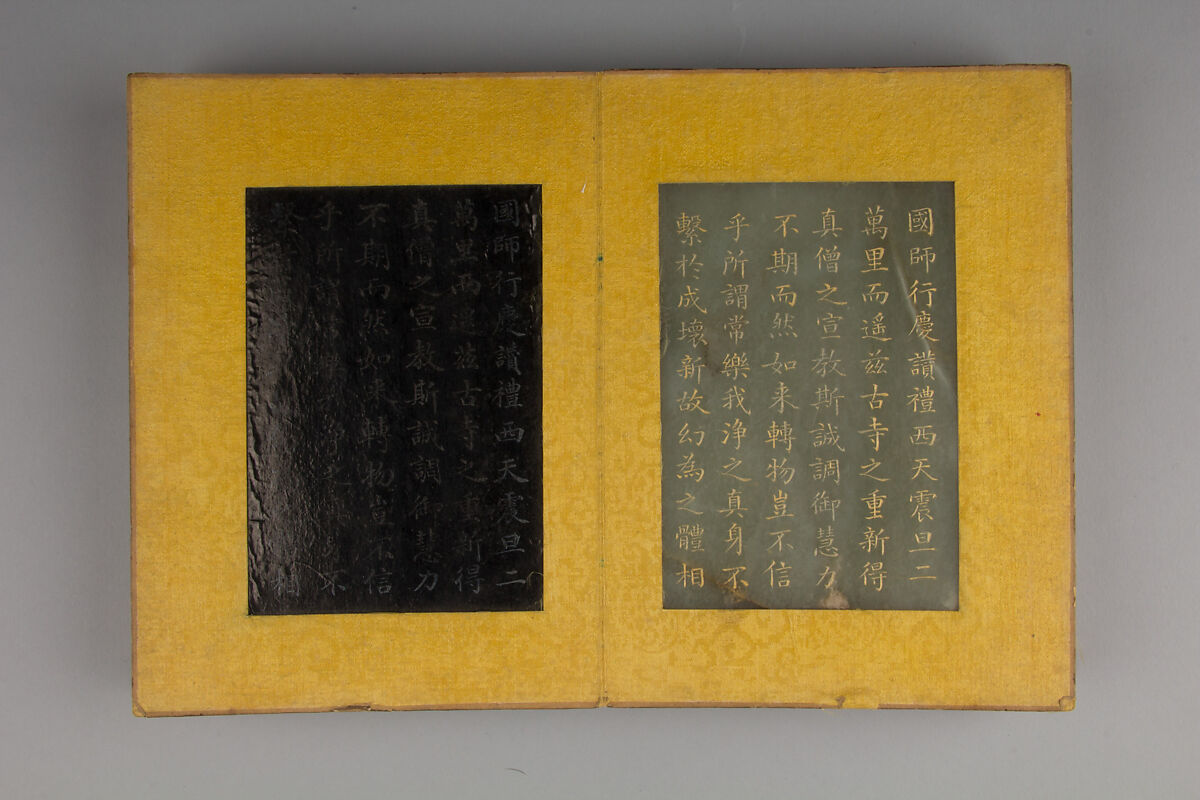 國師行慶讚禮西天震旦二
萬里而遥兹古寺之重新得
真僧之宣教斯誠調御慧力
不期而然如来轉物豈不信
乎所謂常樂我浄之真身不
繫於成壊新故幻為之體相
國師行慶讚禮西天震旦二
萬里而遥兹古寺之重新得
真僧之宣教斯誠調御慧力
不期而然如来轉物豈不信
乎所謂